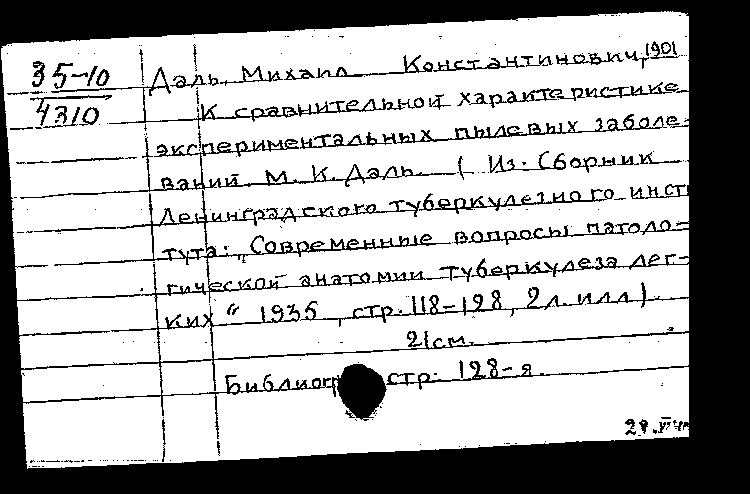 35-10
4310
Даль, Михаил Константинович, 1901
К сравнительной характеристике
экспериментальных пылевых заболе-
ваний. М. К. Даль. (Из: Сборник
Ленинградского туберкулезного инсти
тута: „Современные вопросы патоло-
гической анатомии туберкулеза лег-
ких“ 1935, стр. 118-128, 2 л. илл).
21см.
Библиогр стр: 128-я.